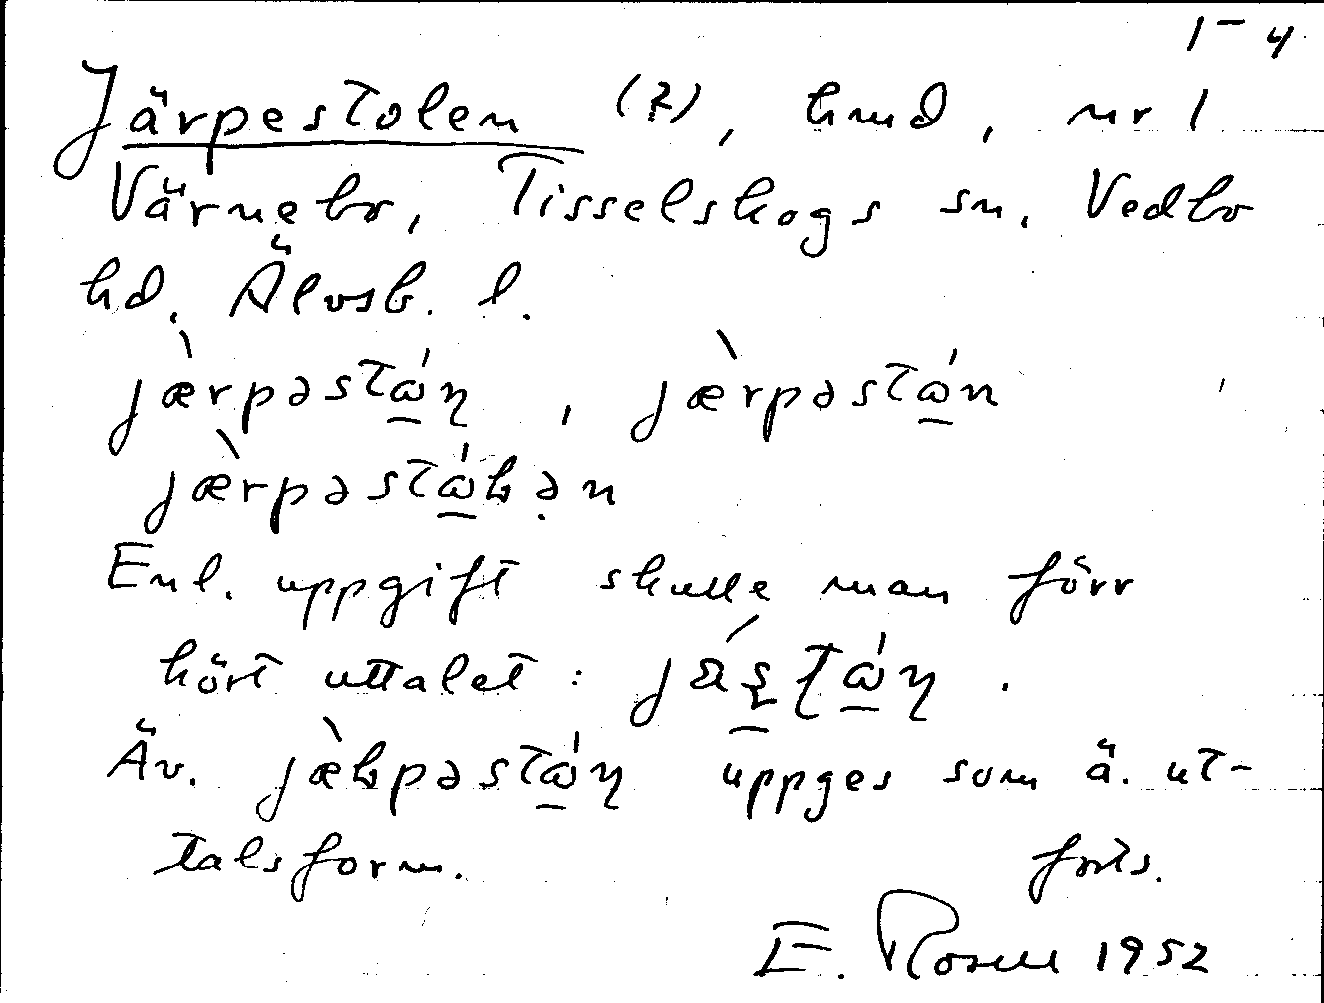 1-4
Järpestolen (R), hmd, nr 1
Värnebo, Tisselskogs sn. Vedbo
hd. Älvsb. l.
jæ̀rpəstώ̲ɳ, jæ̀rpəstώ̲n
jæ̀rpəstώ̲ɽə̣n
Enl. uppgift skulle man förr
hört uttalet:
Äv. jæ̀ɽpəstώ̲ɳ uppges som ä. ut-
talsform. forts.
E. Rosell 1952